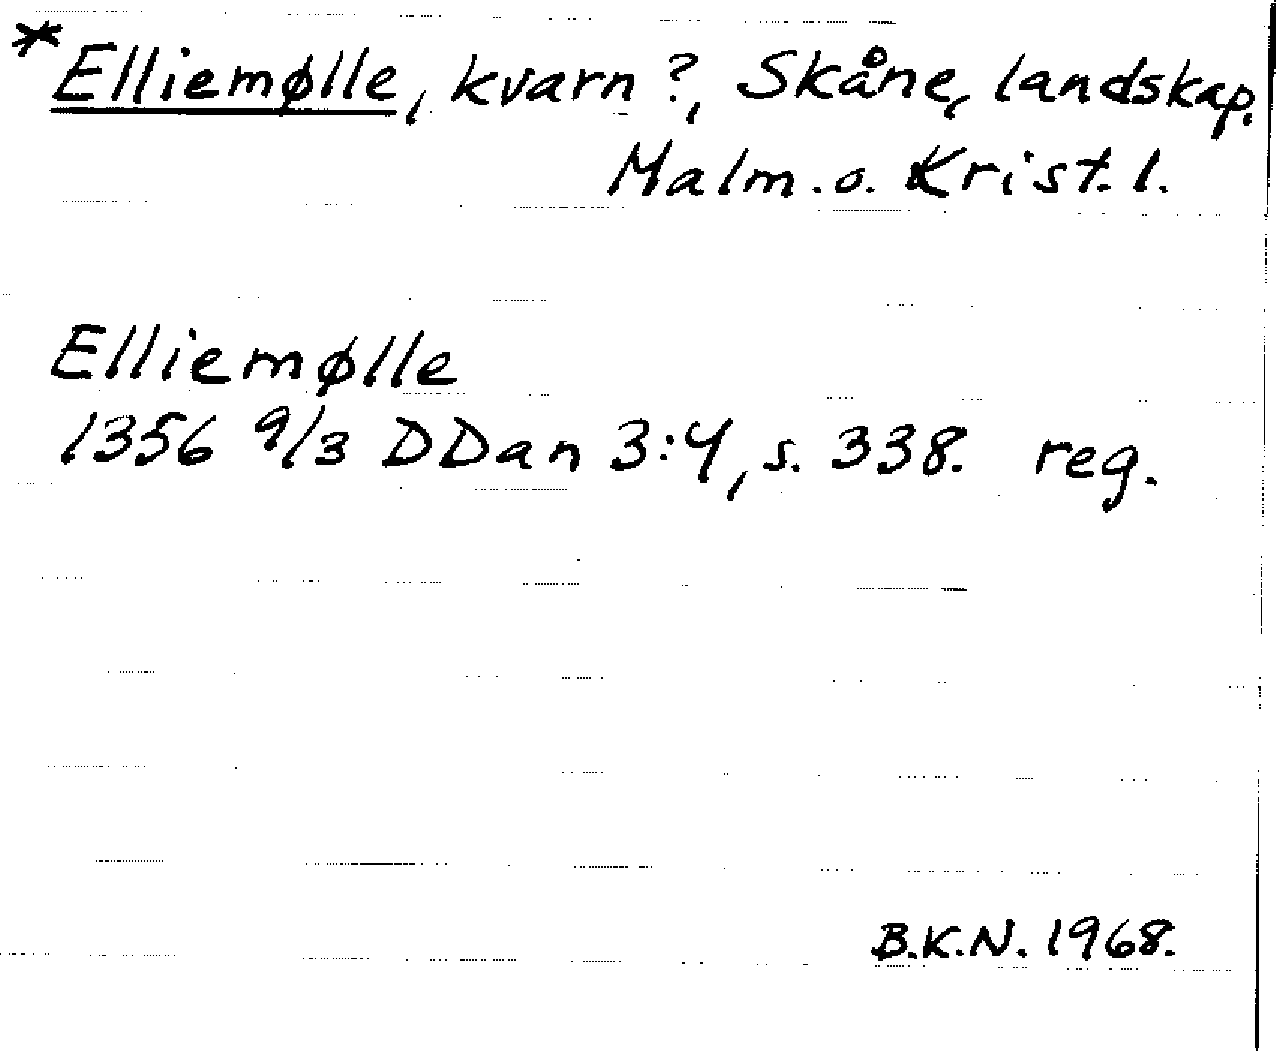 *Elliemølle, kvarn?, Skåne, landskap.
Malm. o. Krist. l.
Elliemølle
1356 9/3 DDan 3:4, s. 338. reg.
B.K.N. 1968.